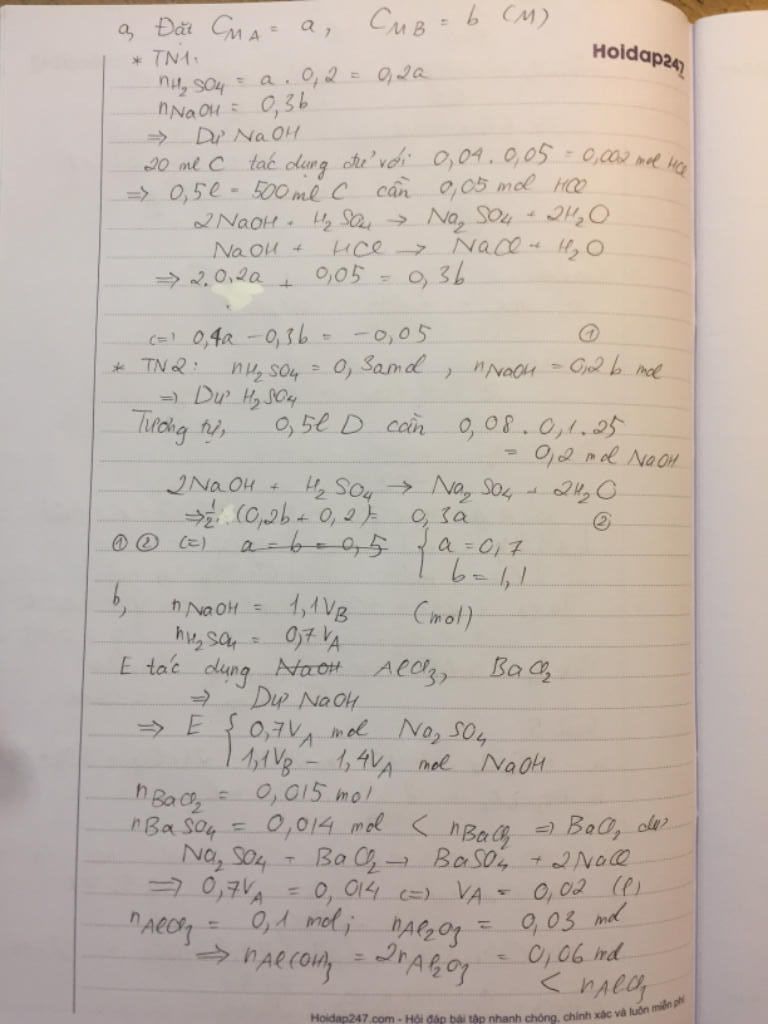 a, Đặt C_MA = a, C_MB = b (M)
Hoidap247
* TN1:
nH2SO4 = a . 0,2 = 0,2a
nNaOH = 0,3b
=> Dư NaOH
20 ml C tác dụng đủ với 0,04 . 0,05 = 0,002 mol HCl
=> 0,5l = 500 ml C cần 0,05 mol HCl
2NaOH + H2SO4 → Na2SO4 + 2H2O
NaOH + HCl → NaCl + H2O
=> 2.0,2a + 0,05 = 0,3b
(=) 0,4a - 0,3b = -0,05 ①
* TN2: nH2SO4 = 0,3a mol, nNaOH = 0,2b mol
=> Dư H2SO4
Tương tự, 0,5l D cần 0,08 . 0,1 . 25
= 0,2 mol NaOH
2NaOH + H2SO4 → Na2SO4 + 2H2O
=> 1/2 . (0,2b + 0,2) = 0,3a ②
① ② (=) a = b = 0,5 { a = 0,7
b = 1,1
b, nNaOH = 1,1VB (mol)
nH2SO4 = 0,7VA
E tác dụng NaOH AlCl3, BaCl2
=> Dư NaOH
=> E { 0,7VA mol Na2SO4
1,1VB - 1,4VA mol NaOH
nBaCl2 = 0,015 mol
nBaSO4 = 0,014 mol < nBaCl2 => BaCl2 dư
Na2SO4 + BaCl2 → BaSO4 + 2NaCl
=> 0,7VA = 0,014 (=) VA = 0,02 (l)
nAlCl3 = 0,1 mol; nAl2O3 = 0,03 mol
=> nAl(OH)3 = 2nAl2O3 = 0,06 mol
< nAlCl3
Hoidap247.com - Hỏi đáp bài tập nhanh chóng, chính xác và luôn miễn phí